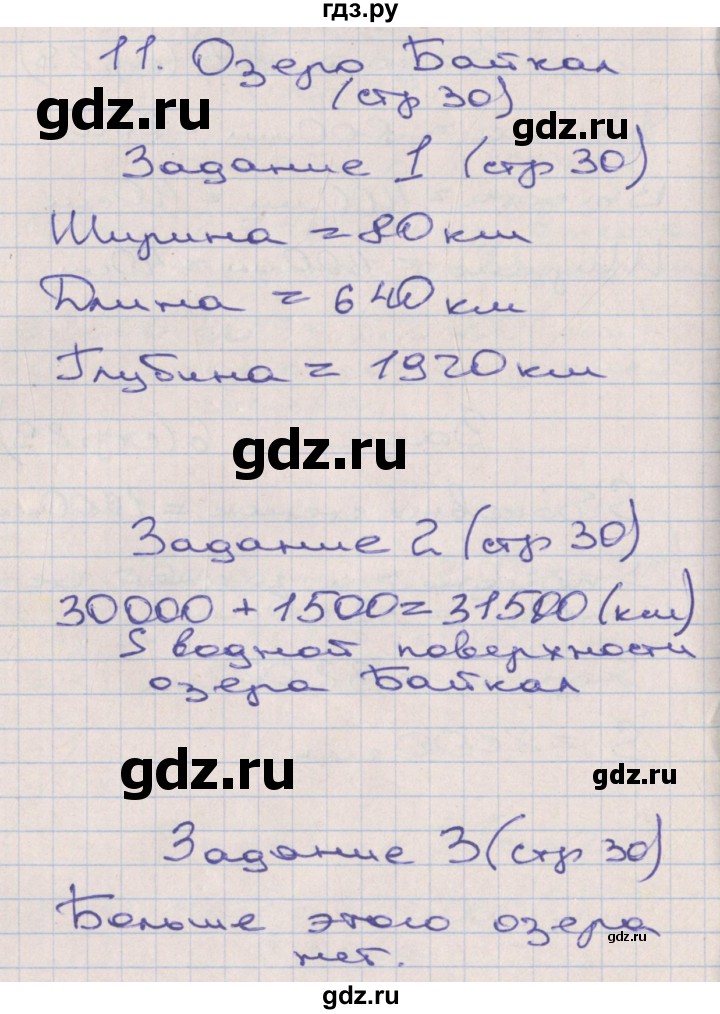 гдз.ру
11. Озеро Байкал
(стр 30)
gdz.ru
gdz.ru
Задание 1 (стр 30)
Ширина = 80 км
Длина = 640 км
Глубина = 1920 км
gdz.ru
Задание 2 (стр 30)
30000 + 1500 = 31500 (км)
S водной поверхности
озера Байкал
gdz.ru
gdz.ru
Задание 3 (стр 30)
Больше этого озера
gdz.ru
нет.
gdz.ru